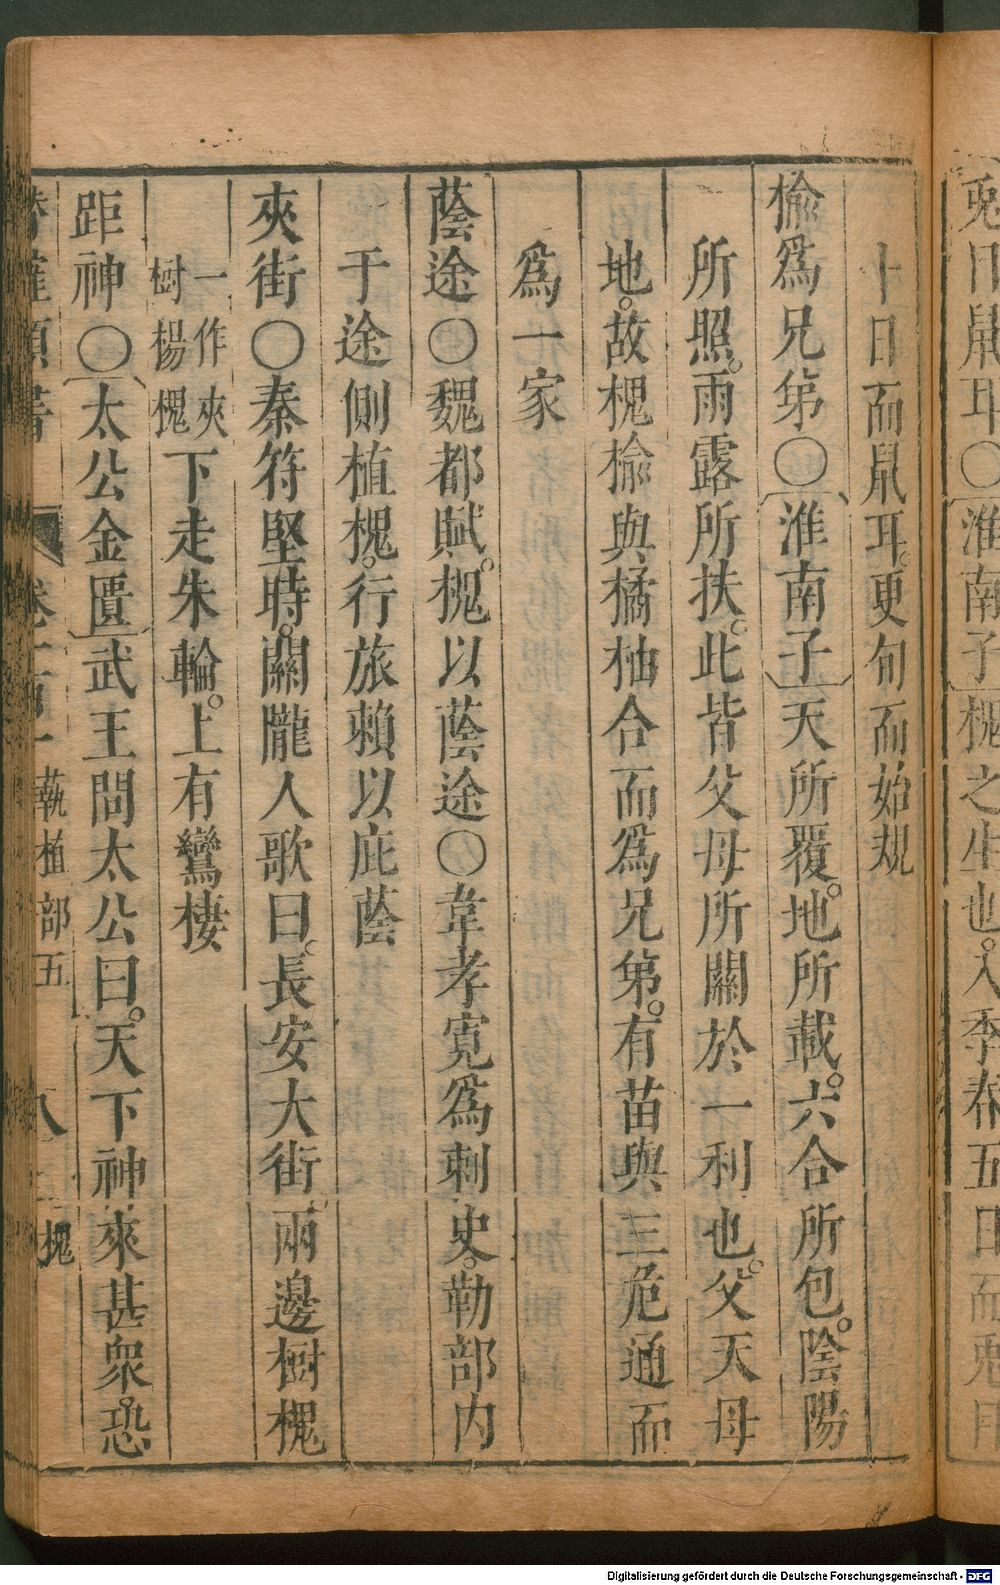 兎目鼠耳〇淮南子槐之生也入季春五日而兎目
十日而鼠耳更旬而始規
楡爲兄弟〇淮南子天所覆地所載六合所包陰陽
所照雨露所扶此皆父母所關於一利也父天母
地故槐楡與橘柚合而爲兄弟有苗與三危通而
爲一家
蔭途〇魏都賦槐以蔭途〇韋孝寬爲刺史勒部内
于途側植槐行旅賴以庇蔭
夾街〇秦符堅時關隴人歌曰長安大街兩邊樹槐
一作夾
樹楊槐
下走朱輪上有鸞棲
距神〇太公金匱武王問太公曰天下神來甚衆恐
類書 卷一百一 執植部五 八 槐
Digitalisierung gefördert durch die Deutsche Forschungsgemeinschaft - DFG